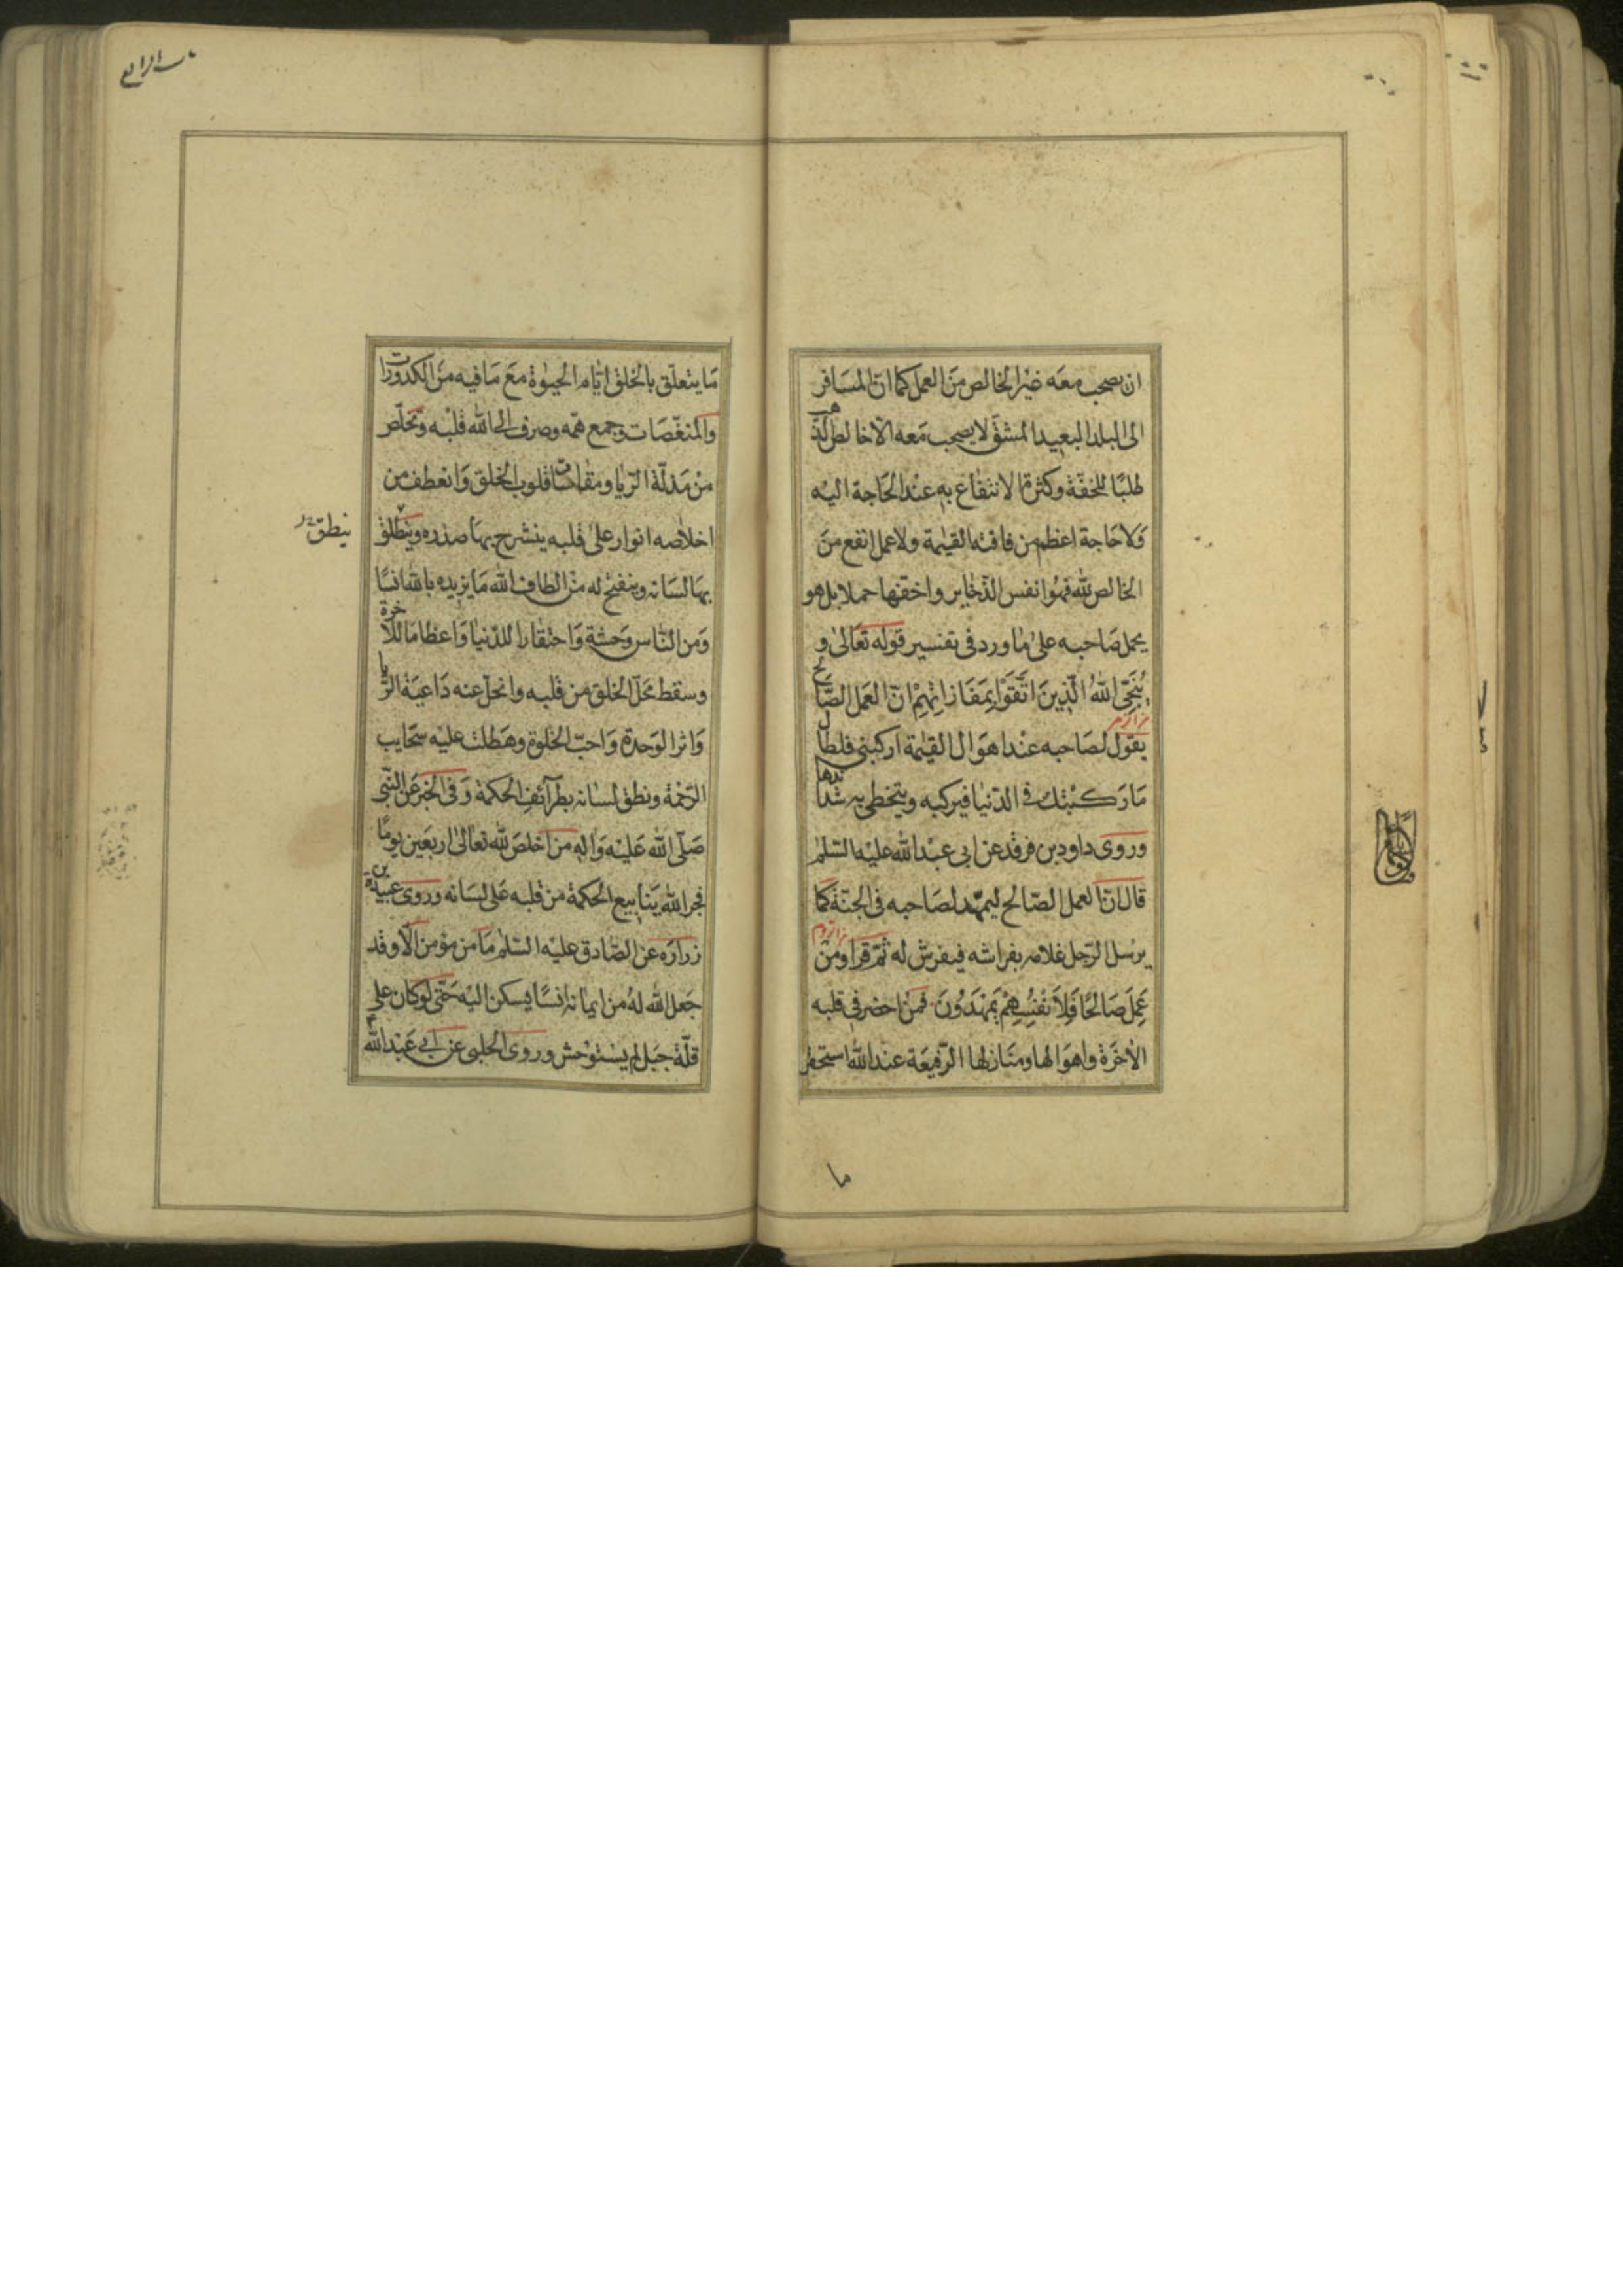 ان يصحب معه غير الخالص من العمل كما ان المسافر
الى البلد البعيد المشق لا يصحب معه الا خالص الذهب
طلبا للخفة وكثرة الانتفاع به عند الحاجة اليه
ولا حاجة اعظم من فاقة القيمة ولا عمل انفع من
الخالص لله فهو انفس الذخاير واخفها حملا بل هو
يحمل صاحبه على ما ورد فى تفسير قوله تعالى و
ينجى الله الذين اتقوا بمفازاتهم ان العمل الصالح
يقول لصاحبه عند اهوال القيمة اركبنى فلطال
ما ركبتك فى الدنيا فيركبه ويتخطى به شدائدها
وروى داود بن فرقد عن ابى عبد الله عليه السلم
قال ان العمل الصالح ليمهد لصاحبه فى الجنة كما
يرسل الرجل غلامه بفراشه فيفرش له ثم قرا ومن
عمل صالحا فلانفسهم يمهدون فمن احضر فى قلبه
الاخرة واهوالها ومنازلها الرفيعة عند الله استحقر
ما
باب الرابع
ما يتعلق بالخلق ايام الحيوة مع ما فيه من الكدورات
والمنغصات وجمع همه وصرف الى الله قلبه وتخلص
من مذلة الريا ومقاسات قلوب الخلق وانعطف من
اخلاصه انوار على قلبه ينشرح بها صدره وينطلق
ينطق
بها لسانه وينفتح له من الطاف الله ما يزيده بالله انسا
ومن الناس وحشة واحتقارا للدنيا واعظاما للاخرة
وسقط محل الخلق من قلبه وانحل عنه داعية الريا
واثر الوحدة واحب الخلوة وهطلت عليه سحايب
الرحمة ونطق لسانه بطرآئف الحكمة وفى الخبر عن النبى
صلى الله عليه واله من اخلص لله تعالى اربعين يوما
فجر الله ينابيع الحكمة من قلبه على لسانه وروى عبيد بن
زراره عن الصادق عليه السلم ما من مؤمن الا وقد
جعل الله له من ايمانه انسا يسكن اليه حتى لو كان على
قلة جبل لم يستوحش وروى الحلبى عن ابى عبد الله